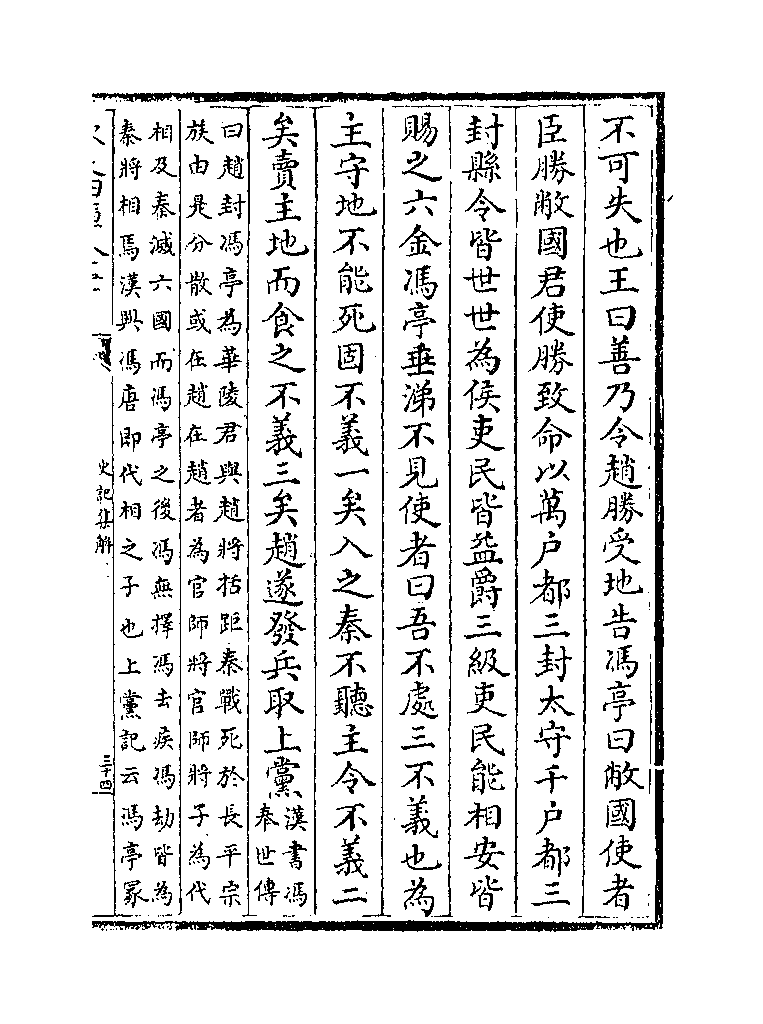 不可失也王曰善乃令趙勝受地告馮亭曰敝國使者
臣勝敝國君使勝致命以萬户都三封太守千户都三
封縣令皆世世為侯吏民皆益爵三級吏民能相安皆
賜之六金馮亭垂涕不見使者曰吾不處三不義也為
主守地不能死固不義一矣入之秦不聽主令不義二
矣賣主地而食之不義三矣趙遂發兵取上黨
漢書馮
奉世傳
曰趙封馮亭為華陵君與趙將括距秦戰死於長平宗
族由是分散或在趙在趙者為官師將官師將子為代
相及秦滅六國而馮亭之後馮無擇馮去疾馮劫皆為
秦將相焉漢興馮唐即代相之子也上黨記云馮亭冢
史記集解
三十四